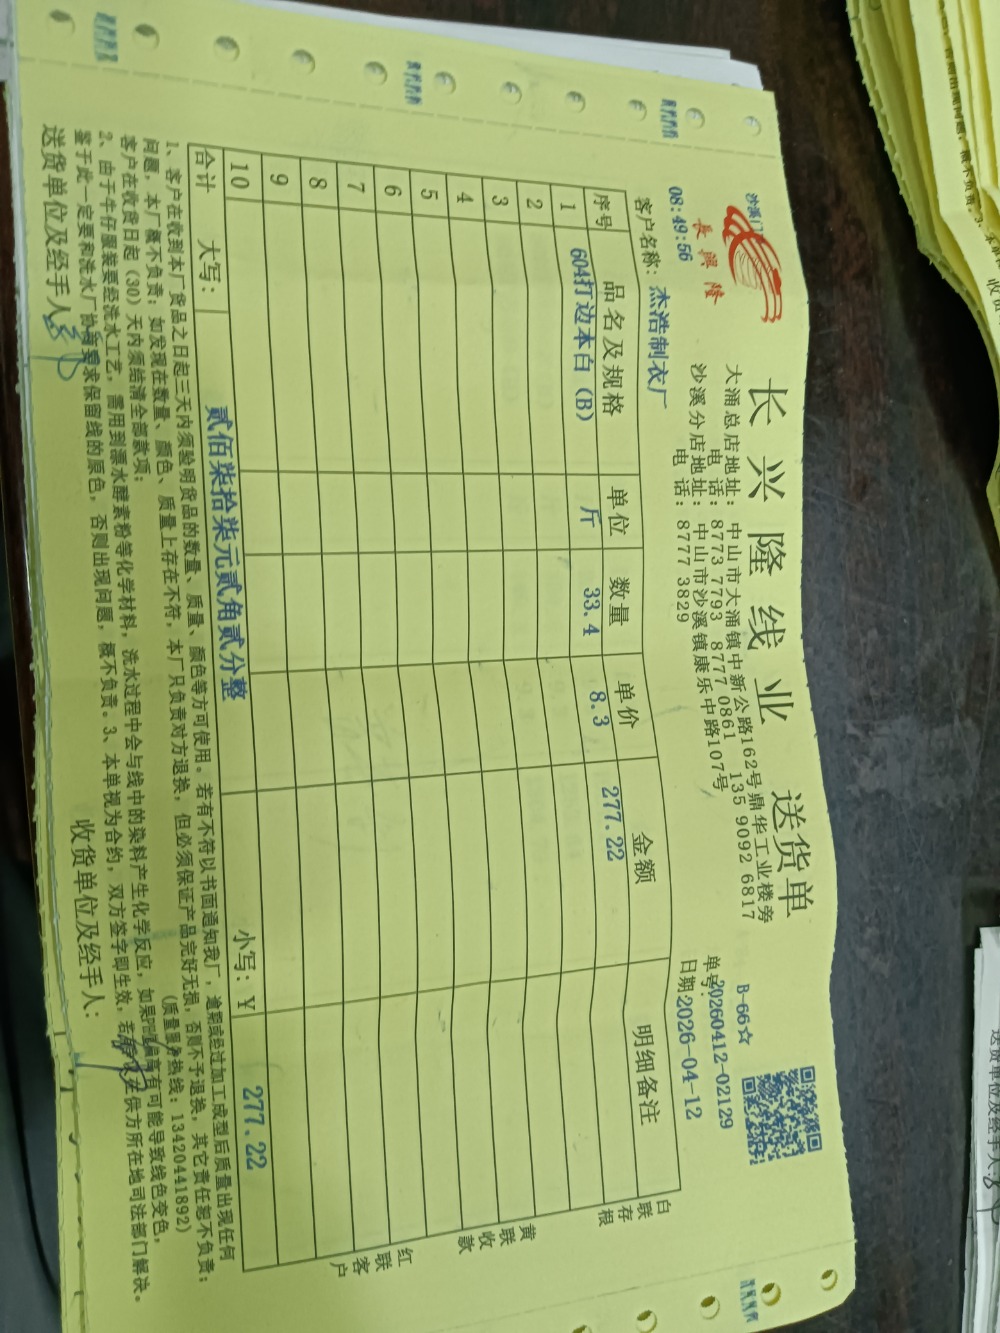 长兴隆线业 送货单
沙溪门
長興隆
B-66☆
大涌总店地址：中山市大涌镇中新公路162号鼎华工业楼旁
电话：8773 7793 8777 0861 135 9092 6817
沙溪分店地址：中山市沙溪镇康乐中路107号
电话：8777 3829
08:49:56
单号：20260412-02129
客户名称：杰浩制衣厂
日期：2026-04-12
序号 品名及规格 单位 数量 单价 金额 明细备注
1 604打边本白（B） 斤 33.4 8.3 277.22
2
3
4
5
6
7
8
9
10
合计 大写：贰佰柒拾柒元贰角贰分整 小写：￥ 277.22
白联存根
黄联收款
红联客户
1、客户在收到本厂货品之日起三天内须验明货品的数量、质量、颜色等方可使用。若有不符以书面通知我厂，逾期或经过加工成型后质量出现任何
问题，本厂概不负责；如发现在数量、颜色、质量上存在不符，本厂只负责对方退换，但必须保证产品完好无损，否则不予退换，其它责任恕不负责；
客户在收货日起（30）天内须结清全部款项； （质量服务热线：13420441892）
2、由于牛仔服装要经洗水工艺，需用到漂水酵素粉等化学材料，洗水过程中会与线中的染料产生化学反应，如果PH值偏高有可能导致线色变色，
鉴于此一定要和洗水厂协商要求保留线的原色，否则出现问题，概不负责。3、本单视为合约，双方签字即生效，若 在供方所在地司法部门解决。
送货单位及经手人： 收货单位及经手人：